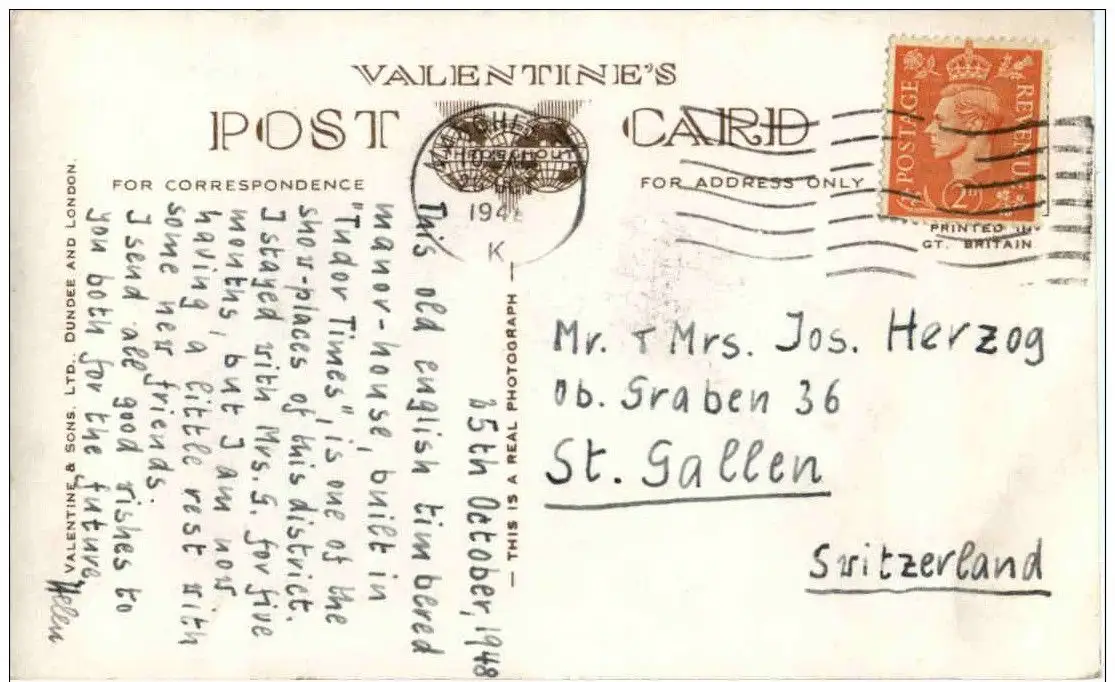 VALENTINE'S
POST CARD
FOR CORRESPONDENCE
FOR ADDRESS ONLY
POSTAGE
REVENUE
2D
PRINTED IN
GT. BRITAIN
194
K
25th October, 1948
This old english timbered
manor-house, built in
"Tudor Times", is one of the
show-places of this district.
I stayed with Mrs. G. for five
months, but I am now
having a little rest with
some new friends.
I send all good wishes to
you both for the future,
Helen
VALENTINE & SONS. LTD., DUNDEE AND LONDON.
— THIS IS A REAL PHOTOGRAPH —
Mr. + Mrs. Jos. Herzog
Ob. Graben 36
St. Gallen
Switzerland